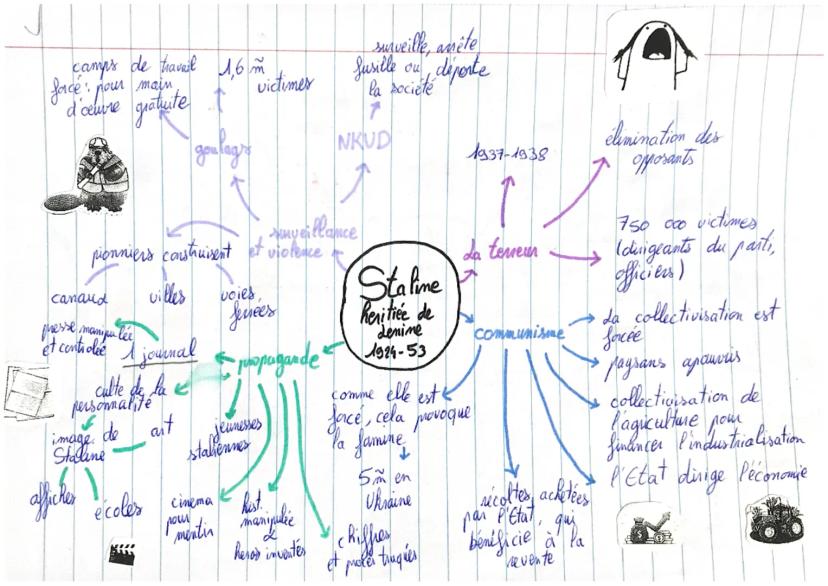 Staline
heritiée de
Lenine
1924-53
surveillance
et violence
goulags
camps de travail
forcé: pour main
d'œuvre gratuite
1,6 m̃
victimes
NKUD
surveille, arrête
fusille ou déporte
la société
pionniers construisent
canaux
villes
voies
ferrées
La terreur
1937-1938
élimination des
opposants
750 000 victimes
(dirigeants du parti,
officiers)
communisme
La collectivisation est
forcée
paysans apauvris
collectivisation de
l'agriculture pour
financer l'industrialisation
l'Etat dirige l'économie
récoltes achetées
par l'Etat, qui
bénéficie à la
revente
comme elle est
forcé, cela provoque
la famine
5 m̃ en
Ukraine
propagande
1 journal
presse manipulée
et controlée
culte de la
personnalité
image de
Staline
art
affiches
écoles
jeunesses
staliennes
cinema
pour
mentir
hist.
manipulée
&
heros inventés
chiffres
et procès truqués